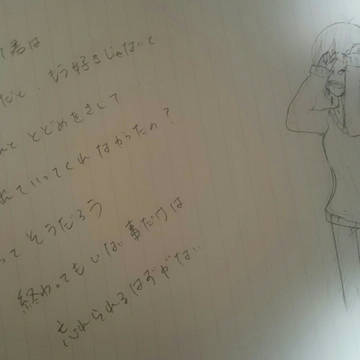 君は
だと、もう好きじゃないと
んと とどめをさして
れていってくれなかったの？
って そうだろう
終わってもいない事だけは
忘れられるはずがない